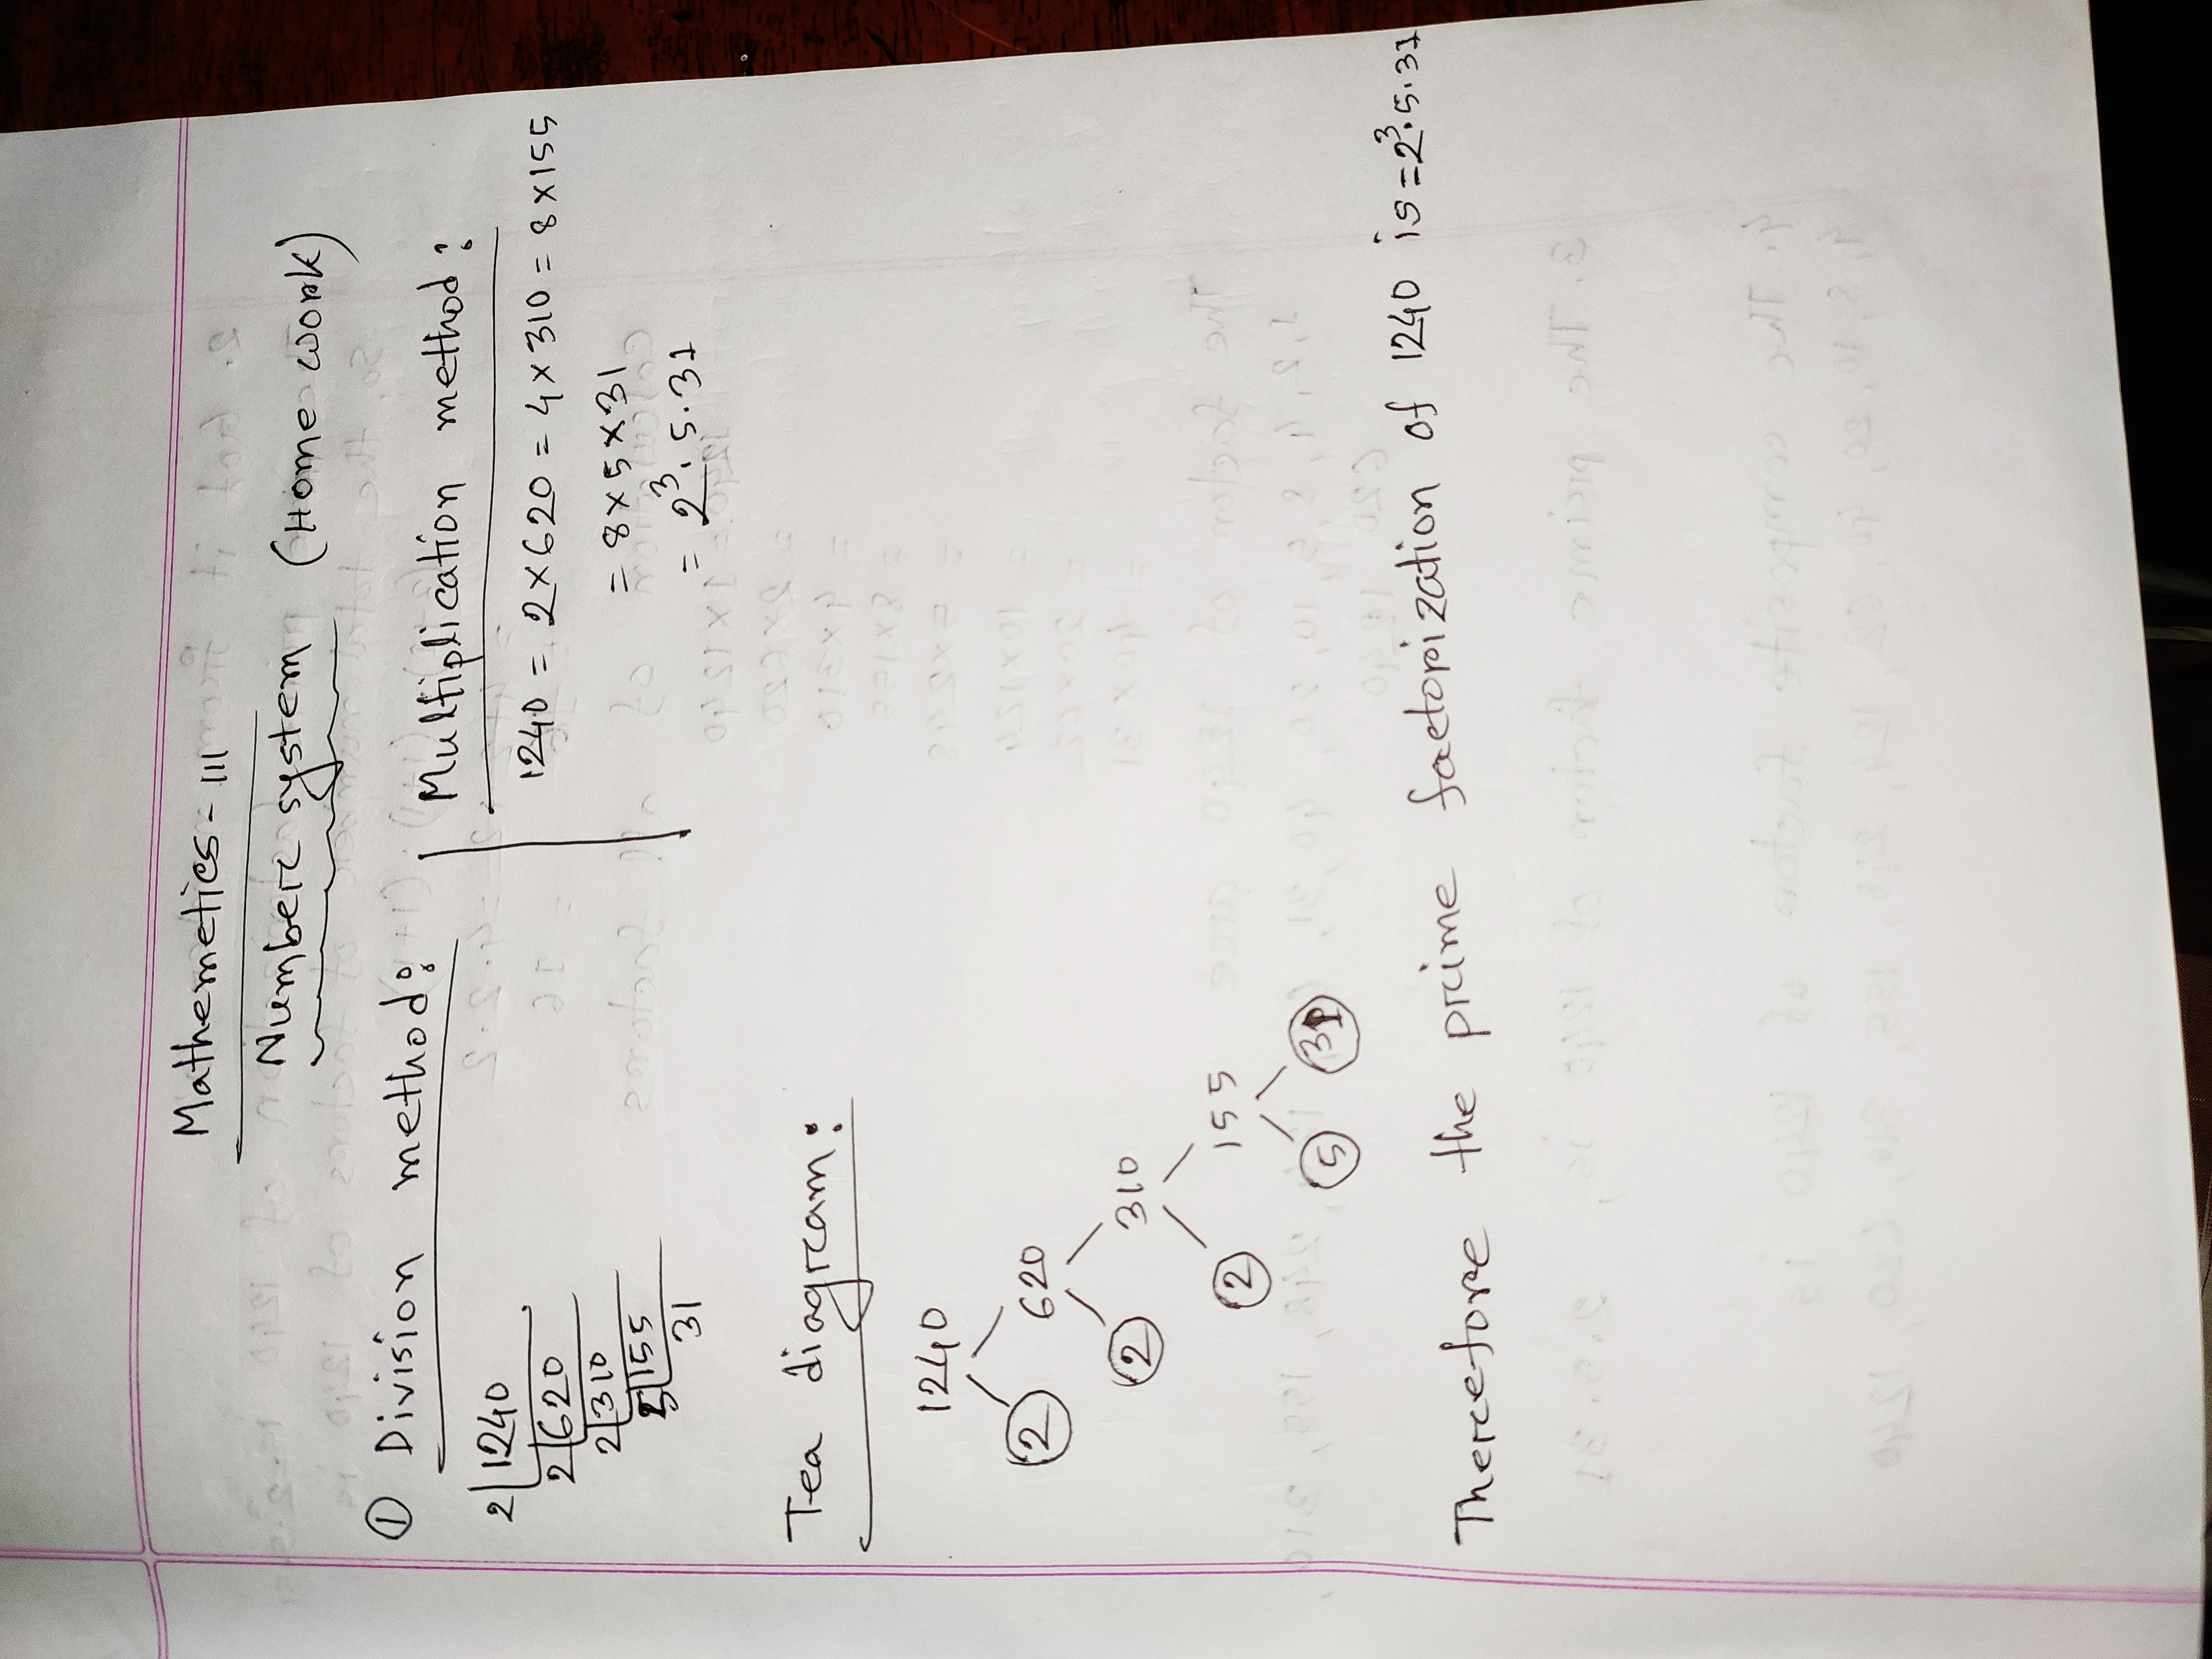 Mathemetics - III
Number system (Home work)
① Division method:
2 1240
2 620
2 310
5 155
31
Multiplication method:
1240 = 2×620 = 4×310 = 8×155
= 8×5×31
= 2³. 5. 31
Tea diagram:
1240
2 620
2 310
2 155
5 31
Therefore the prime factorization of 1240 is = 2³. 5. 31